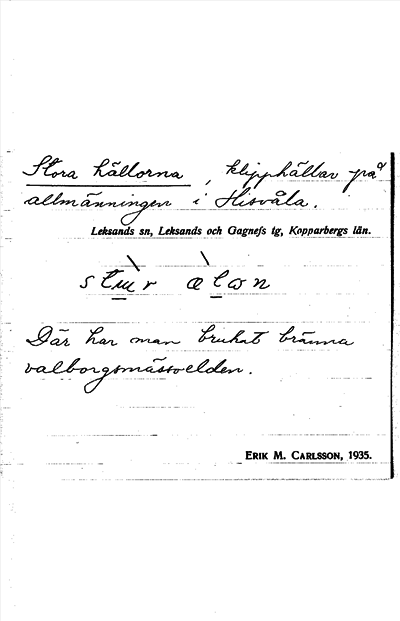 Stora hällorna, klipphällar på
allmänningen i Hisvåla.
Leksands sn, Leksands och Gagnefs tg, Kopparbergs län.
Där har man brukat bränna
valborgsmässoelden.
ERIK M. CARLSSON, 1935.